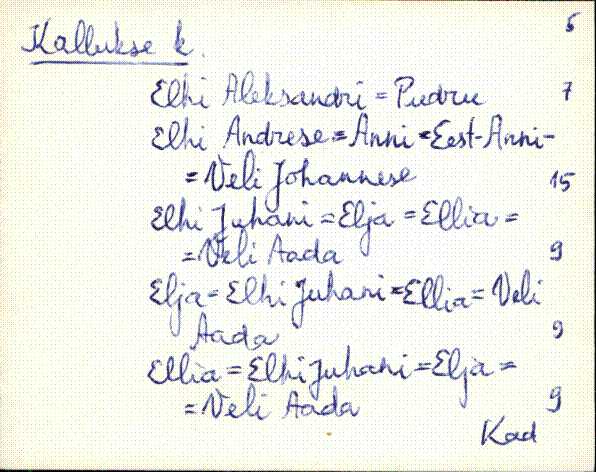 5
Kallukse k.
Elhi Aleksandri = Pudru 7
Elhi Andrese = Anni = Eest-Anni-
= Veli Johannese 15
Elhi Juhani = Elja = Ellia =
= Veli Aada 9
Elja = Elhi Juhani = Ellia = Veli
Aada 9
Ellia = Elhi Juhani = Elja =
= Veli Aada 9
Kad